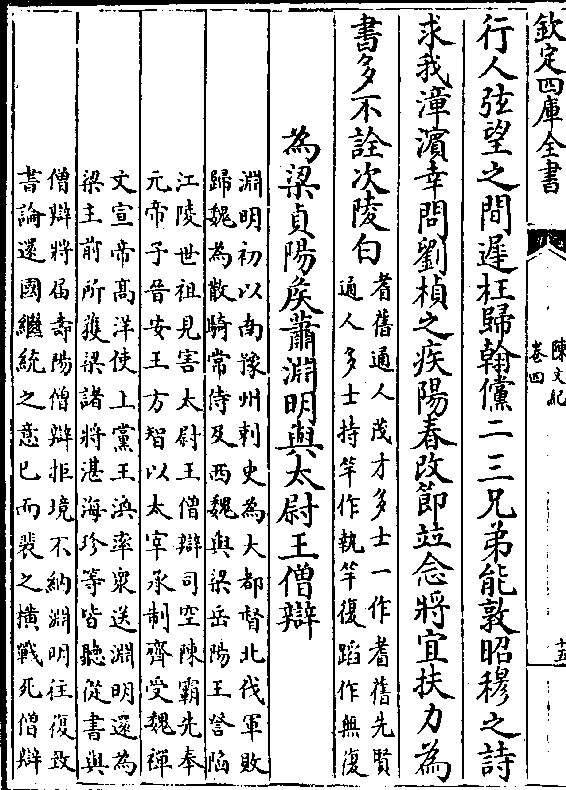 欽定四庫全書
陳文紀
卷四
十五
行人弦望之間遲枉歸翰儻二三兄弟能敦昭穆之詩
求我漳濱幸問劉楨之疾陽春改節竝念將宜扶力為
書多不詮次陵白
耆舊通人茂才多士一作耆舊先賢
通人多士持竿作執竿復蹈作無復
為梁貞陽侯蕭淵明與太尉王僧辯
淵明初以南豫州刺史為大都督北伐軍敗
歸魏為散騎常侍及西魏與梁岳陽王詧陷
江陵世祖見害太尉王僧辯司空陳霸先奉
元帝子晉安王方智以太宰承制齊受魏禪
文宣帝高洋使上黨王渙率衆送淵明還為
梁主前所獲梁諸將湛海珍等皆聽從書與
僧辯將屆壽陽僧辯拒境不納淵明往復致
書論還國繼統之意已而裴之橫戰死僧辯